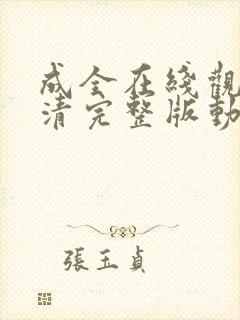 成全在綫觀
清完整版動
張玉貞